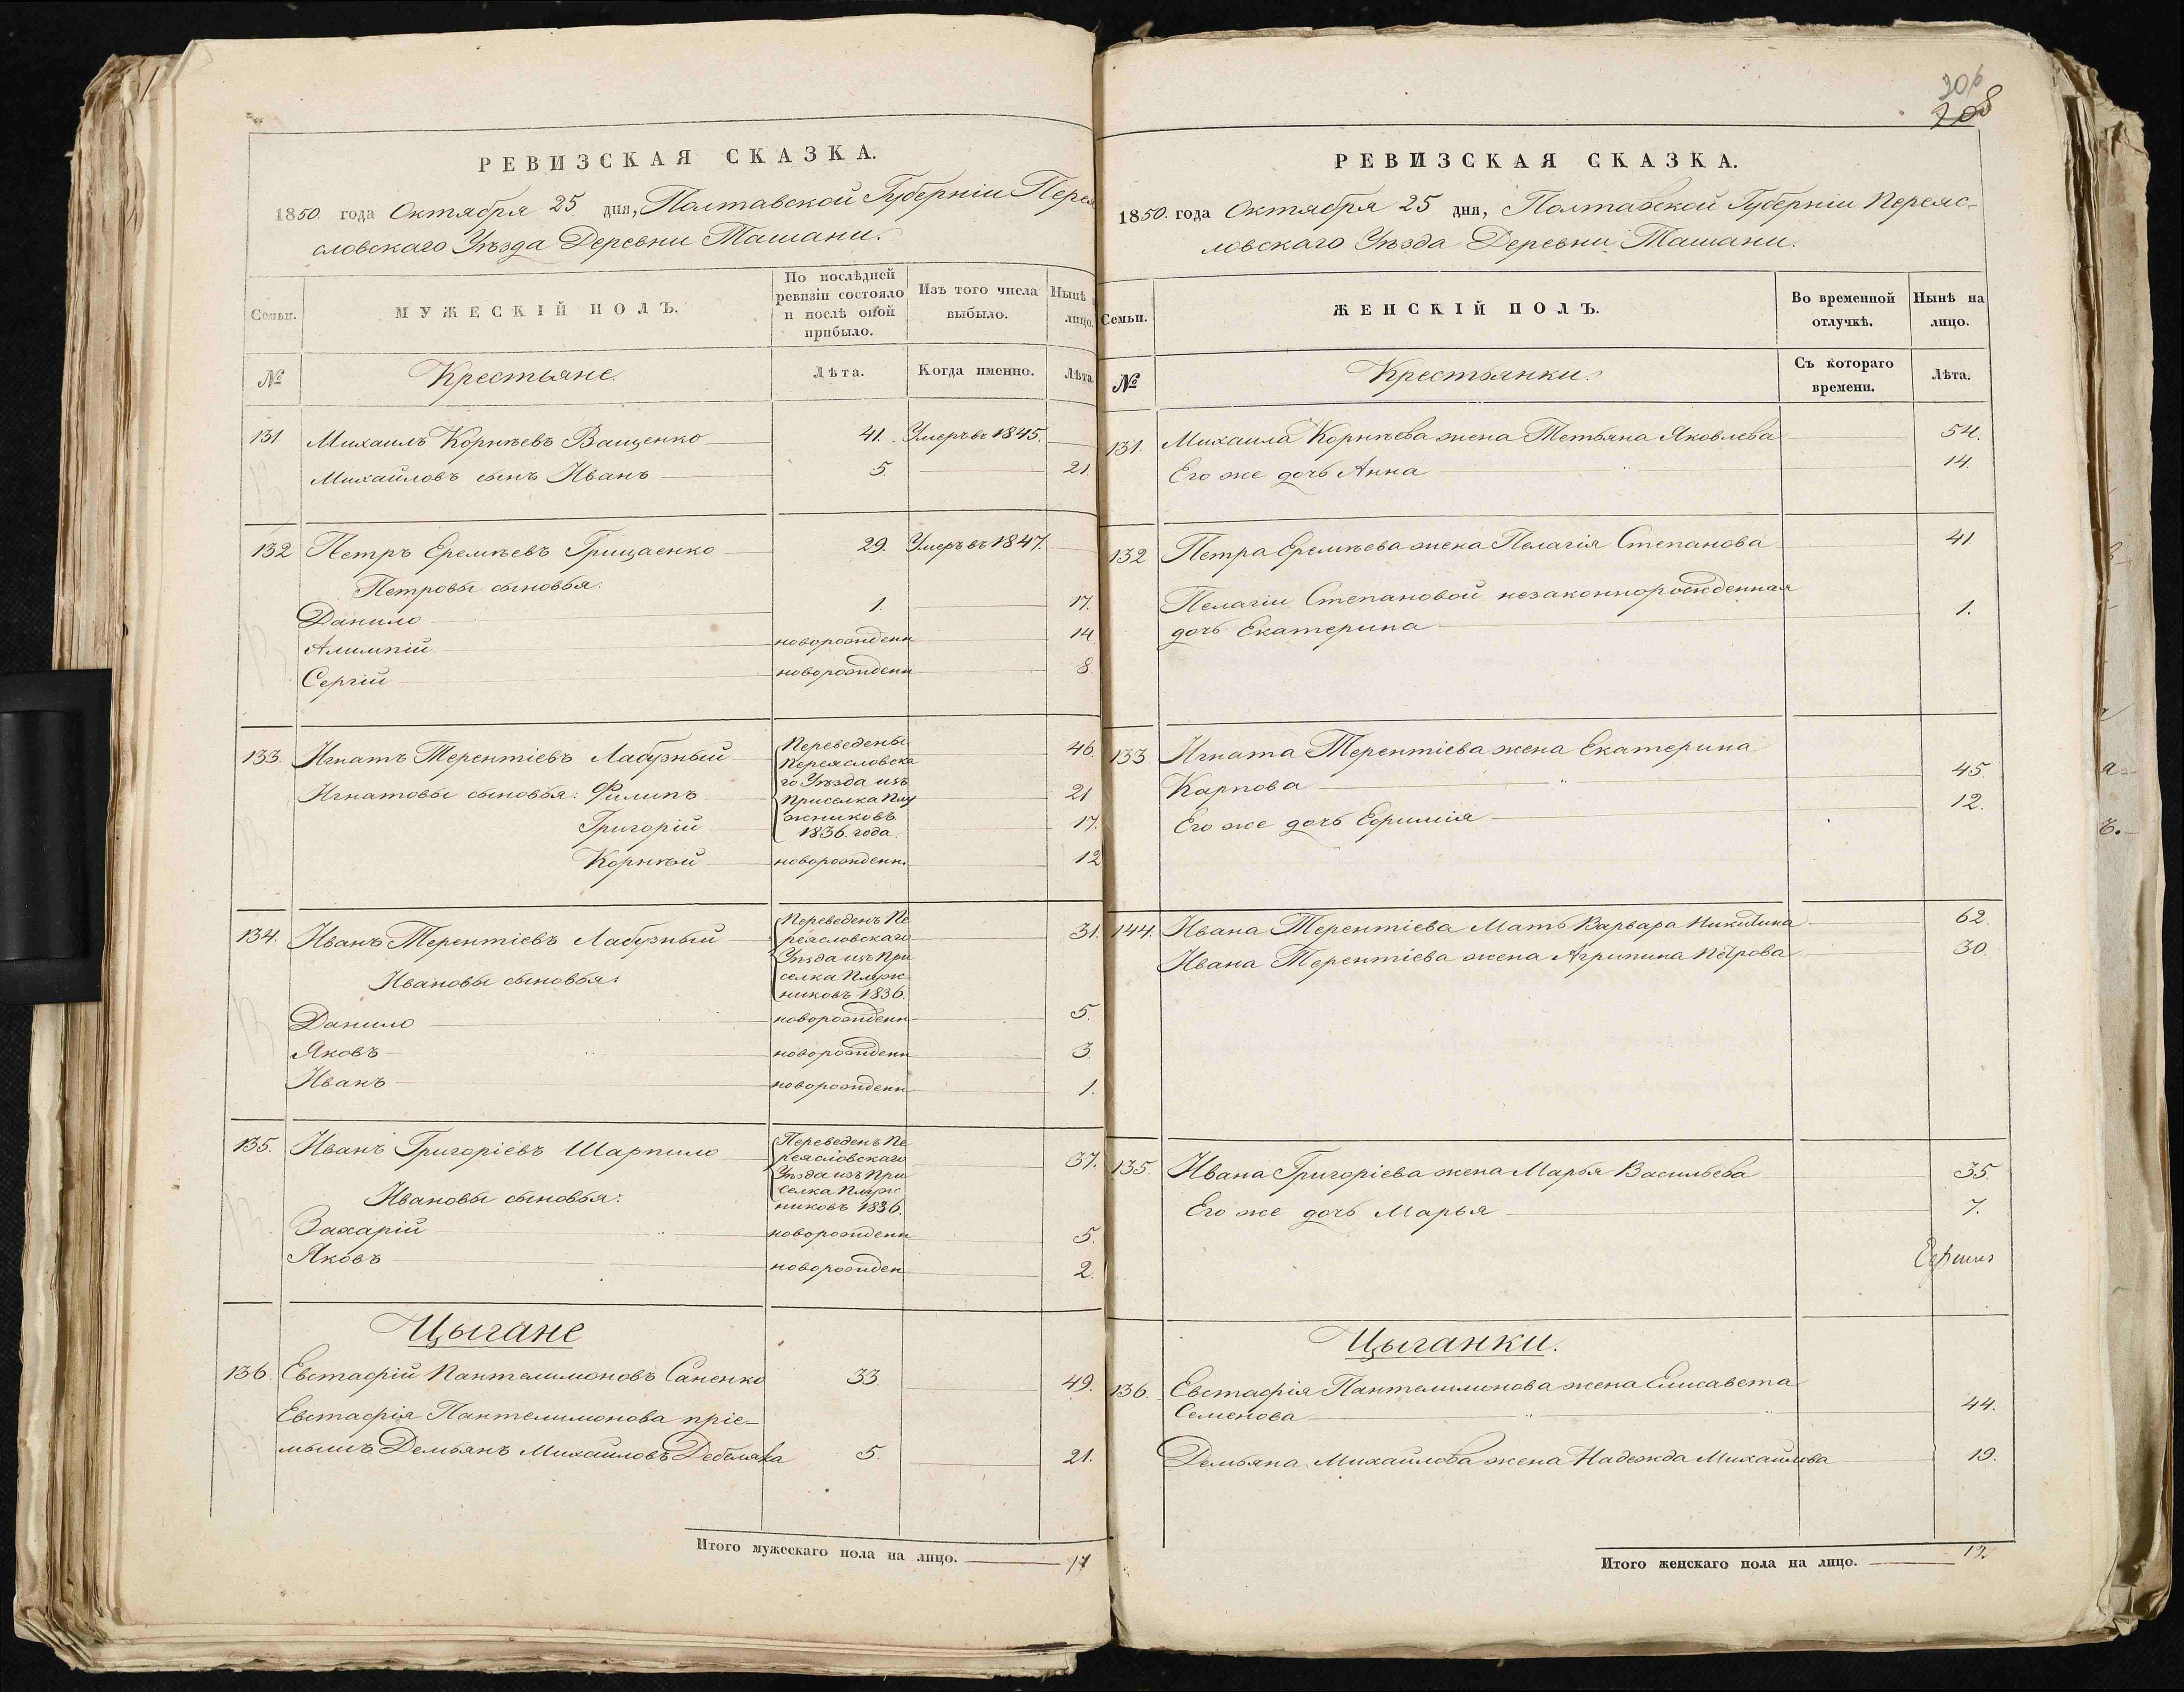 РЕВИЗСКАЯ СКАЗКА.
1850. года Октября 25 дня, Полтавской Губерніи Перея
словскаго Уѣзда Деревни Ташани.
Семьи.
МУЖЕСКІЙ ПОЛЪ.
По послѣдней
ревизіи состояло
и послѣ оной
прибыло.
Изъ того числа
выбыло.
Нынѣ
лицо.
№
Крестьяне.
Лѣта.
Когда именно.
Лѣта
131 Михаилъ Корнѣевъ Ващенко 41. Умеръ въ 1845.
Михайловъ сынъ Иванъ 5. 21.
132 Петръ Еремѣевъ Грищаенко 29. Умеръ въ 1847.
Петровы сыновья:
Данило 1. 17.
Алимпій новорожденн 14
Сергій новорожденн 8.
133. Игнатъ Терентіевъ Лабузный 46.
Переведены
Переясловска
го Уѣзда изъ
Приселка Плу
жниковъ
1836. года.
Игнатовы сыновья: Филипъ 21
Григорій 17.
Корнѣй новорожденн. 12
134. Иванъ Терентіевъ Лабузный 31.
Переведенъ Пе
реясловскаго
Уѣзда изъ При
селка Плуж
никовъ 1836.
Ивановы сыновья:
Данило новорожденн 5.
Яковъ новорожденн 3.
Иванъ новорожденн 1.
135. Иванъ Григоріевъ Шарпило 37.
Переведенъ Пе
реясловскаго
Уѣзда изъ При
селка Плуж
никовъ 1836.
Ивановы сыновья:
Захарій новорожденн 5.
Яковъ новорожден 2.
Цыгане
136. Евстафій Пантелимоновъ Саненко 33. 49.
Евстафія Пантелимонова пріе-
мышъ Демьянъ Михайловъ Дебеляка 5. 21.
Итого мужескаго пола на лицо. 17
206
208
РЕВИЗСКАЯ СКАЗКА.
1850. года Октября 25 дня, Полтавской Губерніи Переяс-
ловскаго Уѣзда Деревни Ташани.
Семьи.
ЖЕНСКІЙ ПОЛЪ.
Во временной
отлучкѣ.
Нынѣ на
лицо.
№
Крестьянки.
Съ котораго
времени.
Лѣта.
131. Михаила Корнѣева жена Тетьяна Яковлева 54.
Его же дочь Анна 14.
132 Петра Еремѣева жена Пелагія Степанова 41.
Пелагіи Степановой незаконнорожденная
дочь Екатерина 1.
133 Игната Терентіева жена Екатерина
Карпова 45.
Его же дочь Ефимія 12.
144. Ивана Терентіева Мать Варвара Никитина 62.
Ивана Терентіева жена Агрипина Петрова 30.
135. Ивана Григоріева жена Марья Васильева 35.
Его же дочь Марья 7.
Цыганки.
136. Евстафія Пантелимонова жена Елисавета
Семенова 44.
Демьяна Михайлова жена Надежда Михайлова 19.
Итого женскаго пола на лицо. 12